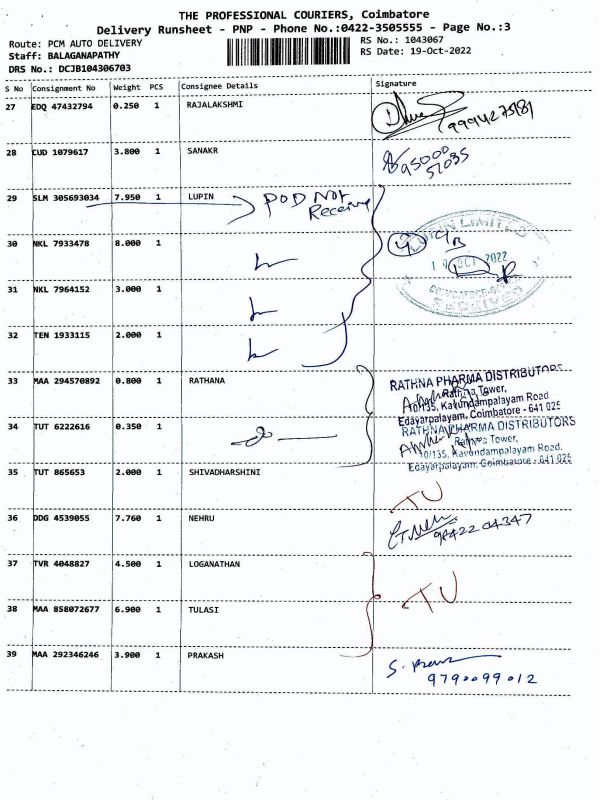 THE PROFESSIONAL COURIERS, Coimbatore
Delivery Runsheet - PNP - Phone No.:0422-3505555 - Page No.:3
Route: PCM AUTO DELIVERY
RS No.: 1043067
Staff: BALAGANAPATHY
RS Date: 19-Oct-2022
DRS No.: DCJB104306703
S No Consignment No Weight PCS Consignee Details Signature
27 EDQ 47432794 0.250 1 RAJALAKSHMI
28 CUD 1079617 3.800 1 SANAKR
95000
57035
29 SLM 305693034 7.950 1 LUPIN POD Not
Receive
LUPIN LIMITED
30 NKL 7933478 8.000 1
19 OCT 2022
31 NKL 7964152 3.000 1
RECEIVED
32 TEN 1933115 2.000 1
33 MAA 294570892 0.800 1 RATHANA
RATHNA PHARMA DISTRIBUTORS
Rathna Tower,
10/135, Kavundampalayam Road
Edayarpalayam, Coimbatore - 641 025
34 TUT 6222616 0.350 1
RATHNA PHARMA DISTRIBUTORS
Rathna Tower,
10/135, Kavundampalayam Road,
Edayarpalayam, Coimbatore - 641 025
35 TUT 865653 2.000 1 SHIVADHARSHINI
TU
36 DDG 4539055 7.760 1 NEHRU
98422 04347
37 TVR 4048827 4.500 1 LOGANATHAN
TU
38 MAA 858072677 6.900 1 TULASI
39 MAA 292346246 3.900 1 PRAKASH
9790099012